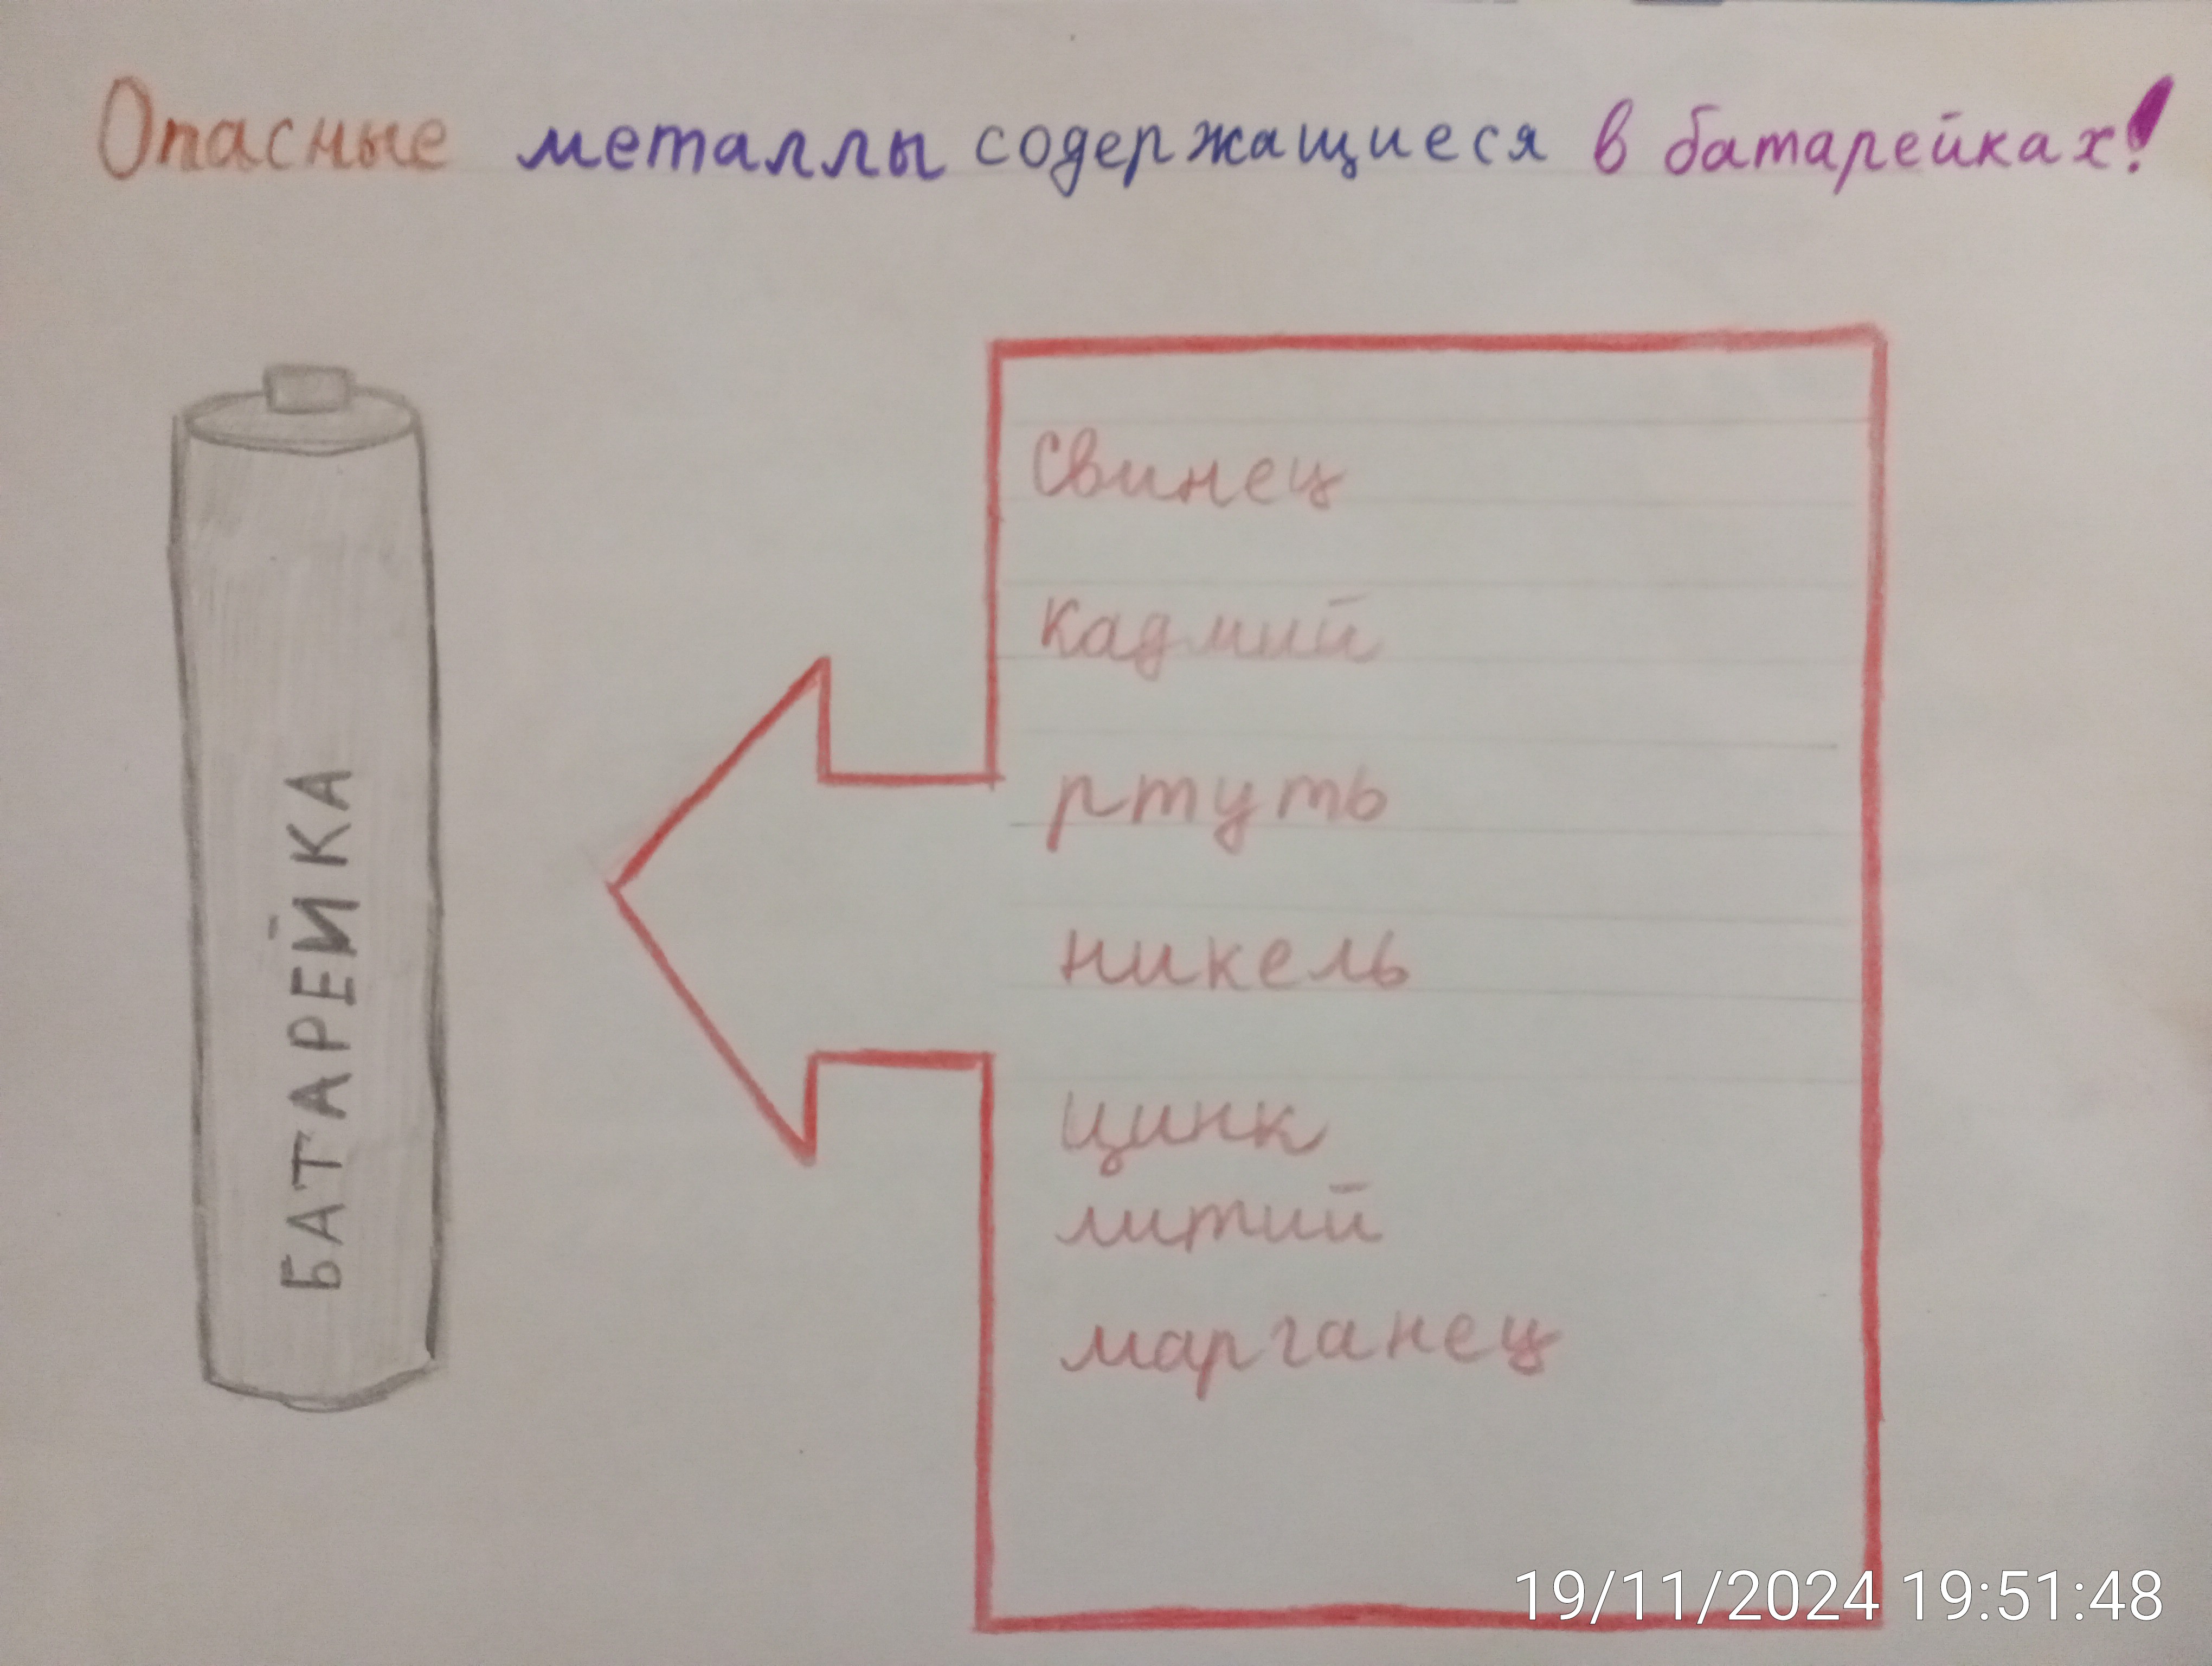 Опасные металлы содержащиеся в батарейках!
БАТАРЕЙКА
Свинец
кадмий
ртуть
никель
цинк
литий
марганец
19/11/2024 19:51:48